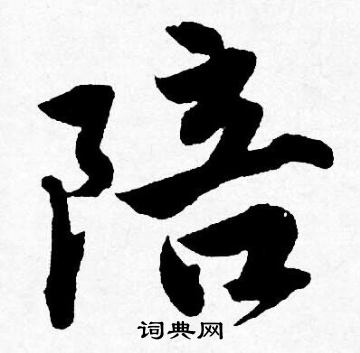 陪
词典网